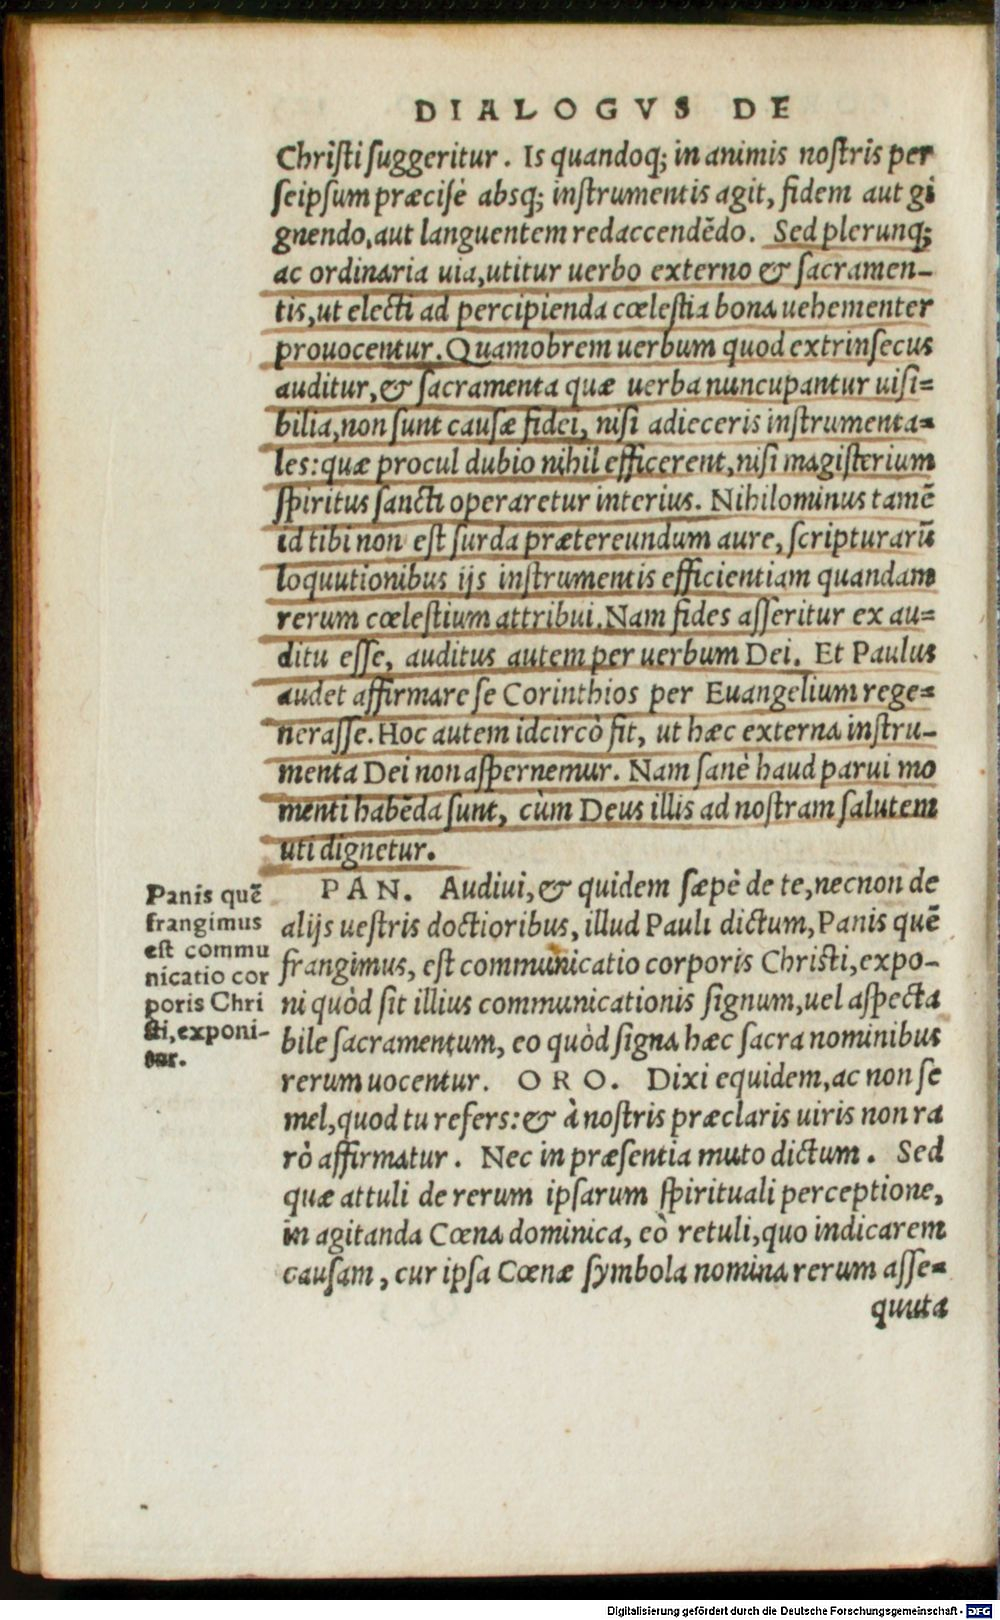 DIALOGVS DE
Christi suggeritur. Is quandoq; in animis nostris per
seipsum præcisè absq; instrumentis agit, fidem aut gi
gnendo, aut languentem redaccendẽdo. Sed plerunq;
ac ordinaria uia, utitur uerbo externo & sacramen-
tis, ut electi ad percipienda cœlestia bona uehementer
prouocentur. Quamobrem uerbum quod extrinsecus
auditur, & sacramenta quæ uerba nuncupantur uisi=
bilia, non sunt causæ fidei, nisi adieceris instrumenta=
les: quæ procul dubio nihil efficerent, nisi magisterium
spiritus sancti operaretur interius. Nihilominus tamẽ
id tibi non est surda prætereundum aure, scripturarũ
loquutionibus ijs instrumentis efficientiam quandam
rerum cœlestium attribui. Nam fides asseritur ex au=
ditu esse, auditus autem per uerbum Dei. Et Paulus
audet affirmare se Corinthios per Euangelium rege=
nerasse. Hoc autem idcircò fit, ut hæc externa instru-
menta Dei non aspernemur. Nam sanè haud parui mo
menti habẽda sunt, cùm Deus illis ad nostram salutem
uti dignetur.
PAN. Audiui, & quidem sæpè de te, necnon de
alijs uestris doctioribus, illud Pauli dictum, Panis quẽ
frangimus, est communicatio corporis Christi, expo-
ni quòd sit illius communicationis signum, uel aspecta
bile sacramentum, eo quòd signa hæc sacra nominibus
rerum uocentur. ORO. Dixi equidem, ac non se
mel, quod tu refers: & à nostris præclaris uiris non ra
rò affirmatur. Nec in præsentia muto dictum. Sed
quæ attuli de rerum ipsarum spirituali perceptione,
in agitanda Cœna dominica, eò retuli, quo indicarem
causam, cur ipsa Cœnæ symbola nomina rerum asse=
quuta
Panis quẽ
frangimus
est commu
nicatio cor
poris Chri
sti, exponi-
tur.
Digitalisierung gefördert durch die Deutsche Forschungsgemeinschaft - DFG